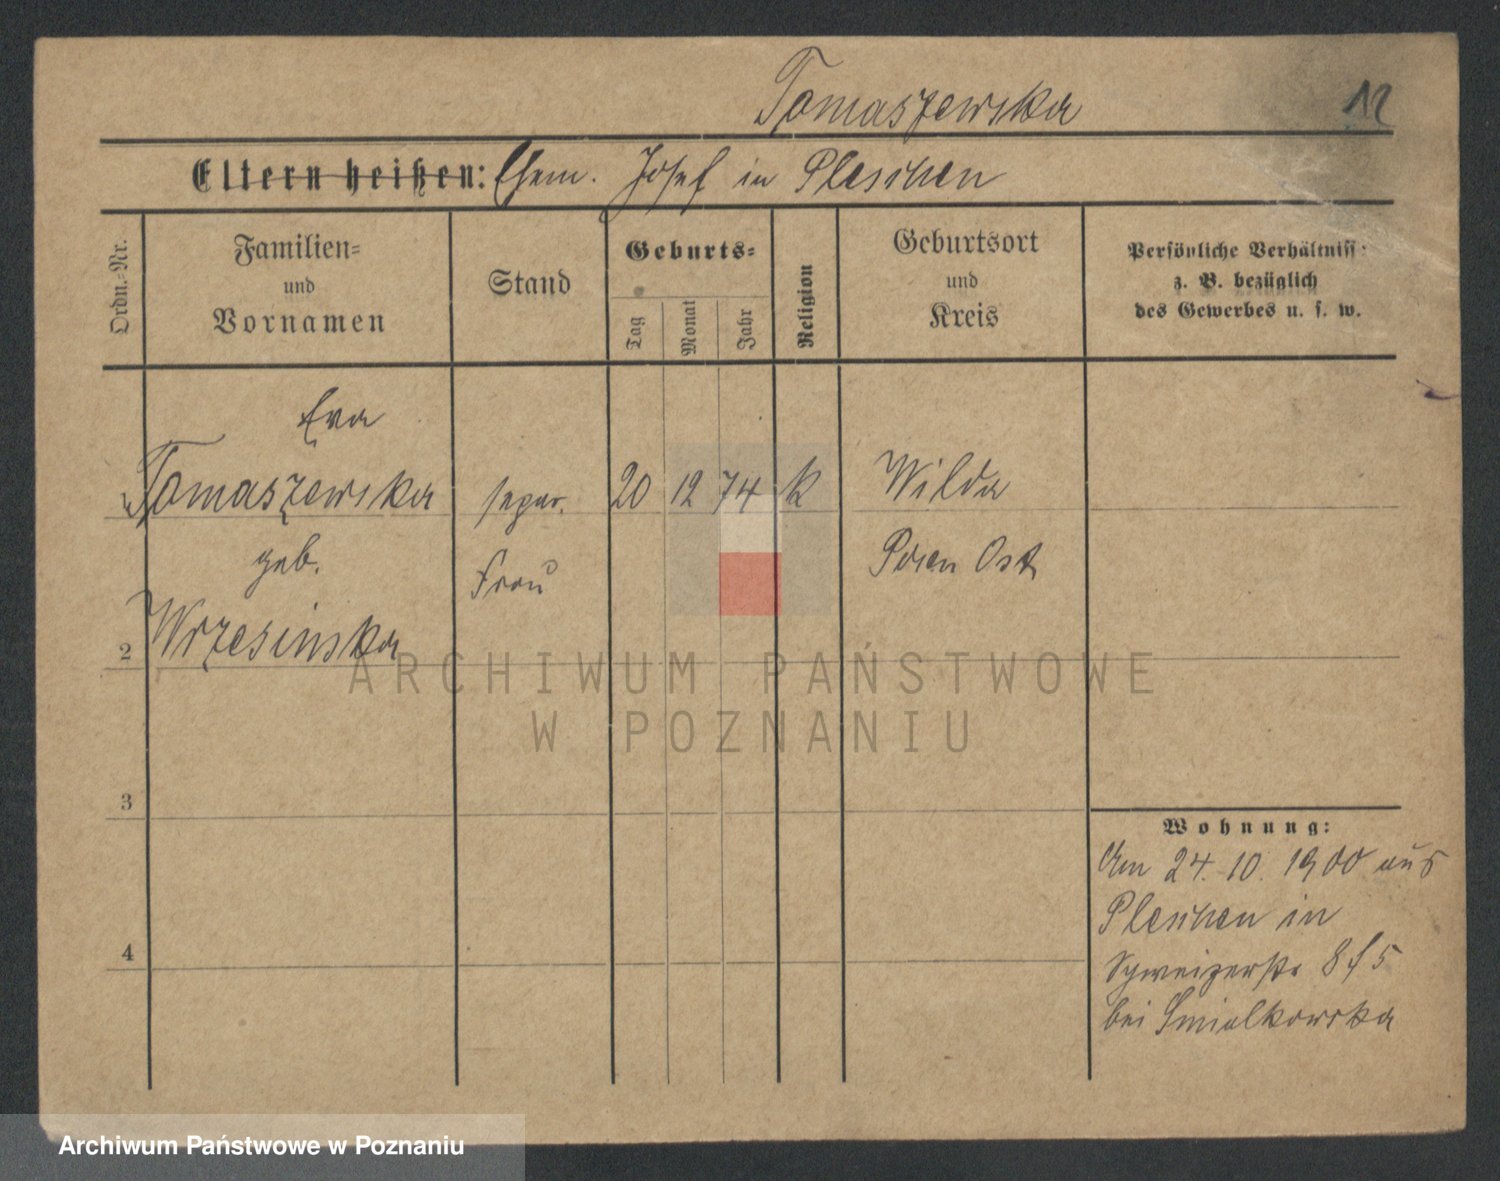 Tomaszewska
12
Eltern heißen: Ehem. Josef in Pleschen
Ordn.-Nr.
Familien-
und
Vornamen
Stand
Geburts-
Tag
Monat
Jahr
Religion
Geburtsort
und
Kreis
Persönliche Verhältniss
z. B. bezüglich
des Gewerbes u. s. w.
Eva
Tomaszewska separ. 20 12 74 k Wilda
geb. Frau Posen Ost
2 Wrzesinska
3
4
Wohnung:
Am 24. 10. 1900 aus
Pleschen in
Schweizerstr 8 f 5
bei Smialkowska
ARCHIWUM PAŃSTWOWE
W POZNANIU
Archiwum Państwowe w Poznaniu